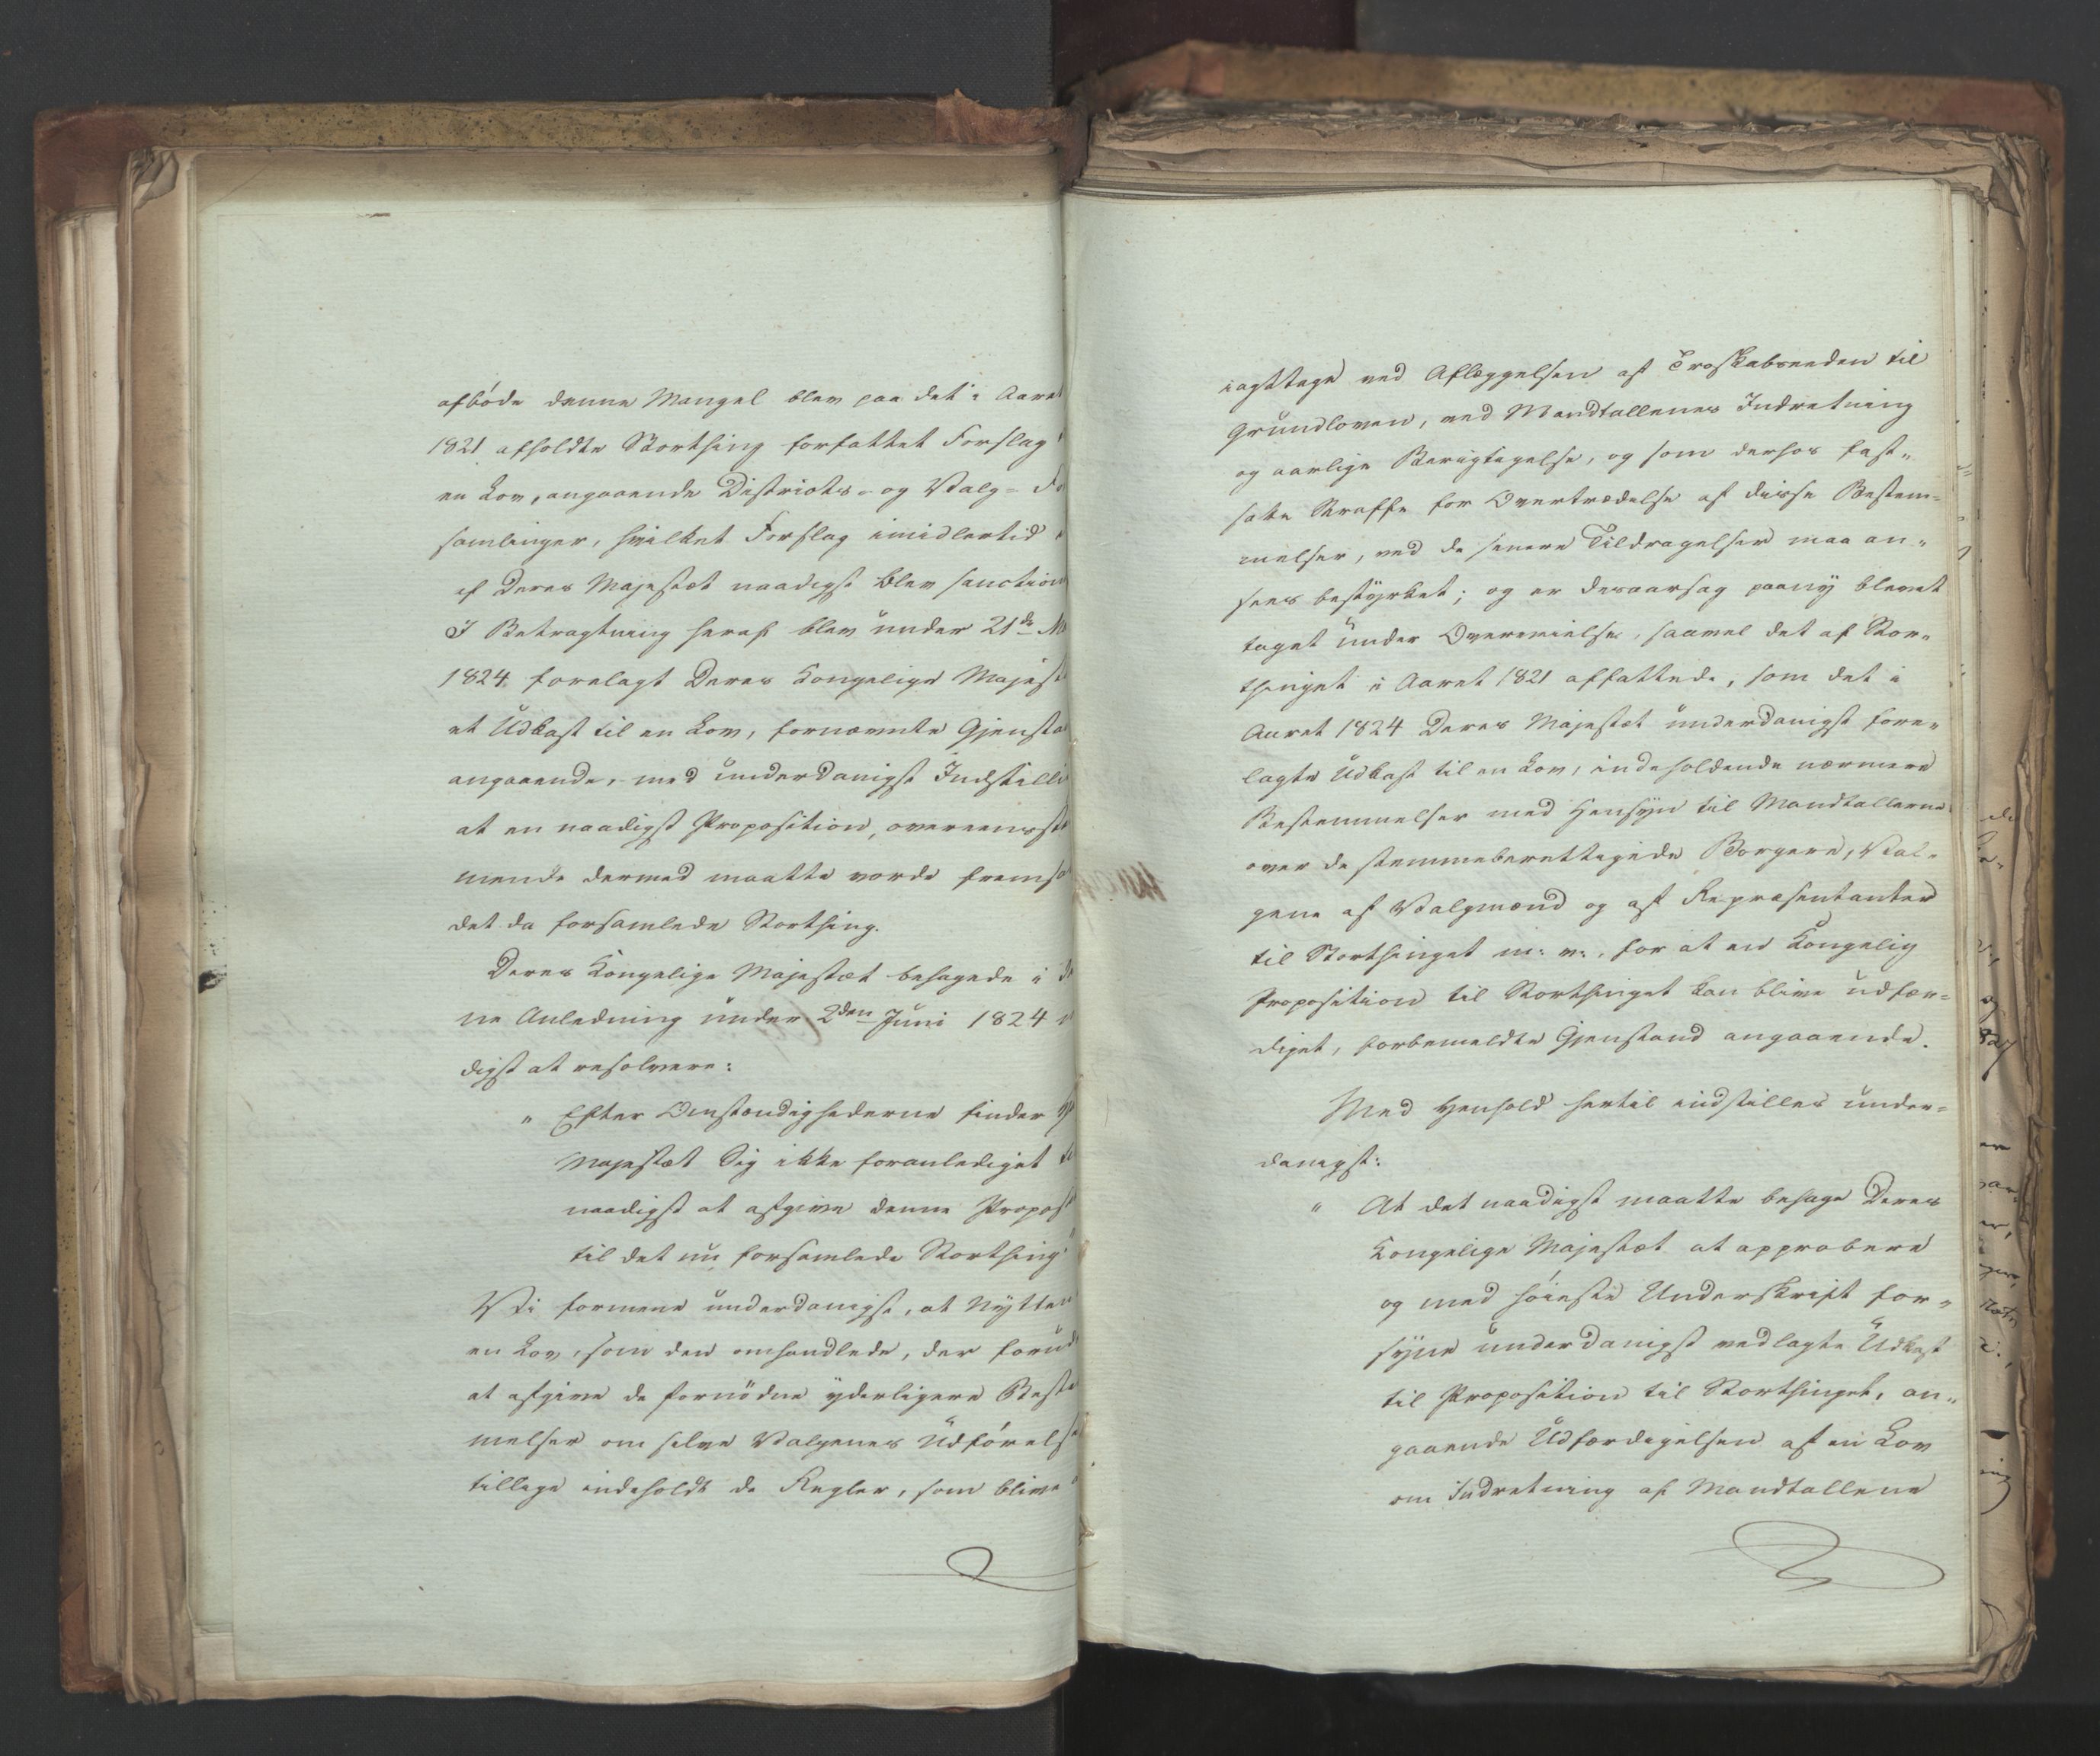 afböde denne Mangel blev paa det i Aaret
1821 afholdte Storthing forfattet Forslag
en Lov, angaaende Districts- og Valg-
samlinger, hvilket Forslag imidlertid
af Deres Majestæt naadigst blev sanction
I Betragtning heraf blev under 21de
1824 forelagt Deres Kongelige Majest
et Udkast til en Lov, fornævnte Gjensta
angaaende, med underdanigst Indstilli
at en naadigst Proposition, overeensst
mende dermed maatte vorde fremsa
det da forsamlede Storthing.
Deres Kongelige Majestæt behagede i
ne Anledning under 2den Juni 1824
digst at resolvere:
" Efter Omstændighederne finder
Majestæt Sig ikke foranlediget
naadigst at afgive denne Propos
til det nu forsamlede Storthing"
Vi formene underdanigst, at Nytten
en Lov, som den omhandlede, der forud
at afgive de fornödne yderligere Beste
melser om selve Valgenes Udförelse
tillige indeholdt de Regler, som blive
iagttage ved Aflæggelsen af Troskabseeden til
Grundloven, ved Mandtallenes Indretning
og aarlige Berigtigelse, og som derhos fast-
satte Straffe for Overtrædelse af disse Bestem-
melser, ved de senere Tildragelser maa an-
sees bestyrket; og er desaarsag paany blevet
taget under Overveielse, saavel det af Stor-
thinget i Aaret 1821 affattede, som det i
Aaret 1824 Deres Majestæt underdanigst fore-
lagte Udkast til en Lov, indeholdende nærmere
Bestemmelser med Hensyn til Mandtallerne
over de stemmeberettigede Borgere, Val-
gene af Valgmænd og af Repræsentanter
til Storthinget m: v:, for at en Kongelig
Proposition til Storthinget kan blive udfær-
diget, forbemeldte Gjenstand angaaende.
Med Henhold hertil indstilles under-
danigst:
" At det naadigst maatte behage Deres
Kongelige Majestæt at approbere
og med höieste Underskrift for-
syne underdanigst vedlagte Udkast
til Proposition til Storthinget, an-
gaaende Udfærdigelsen af en Lov
om Indretning af Mandtallene